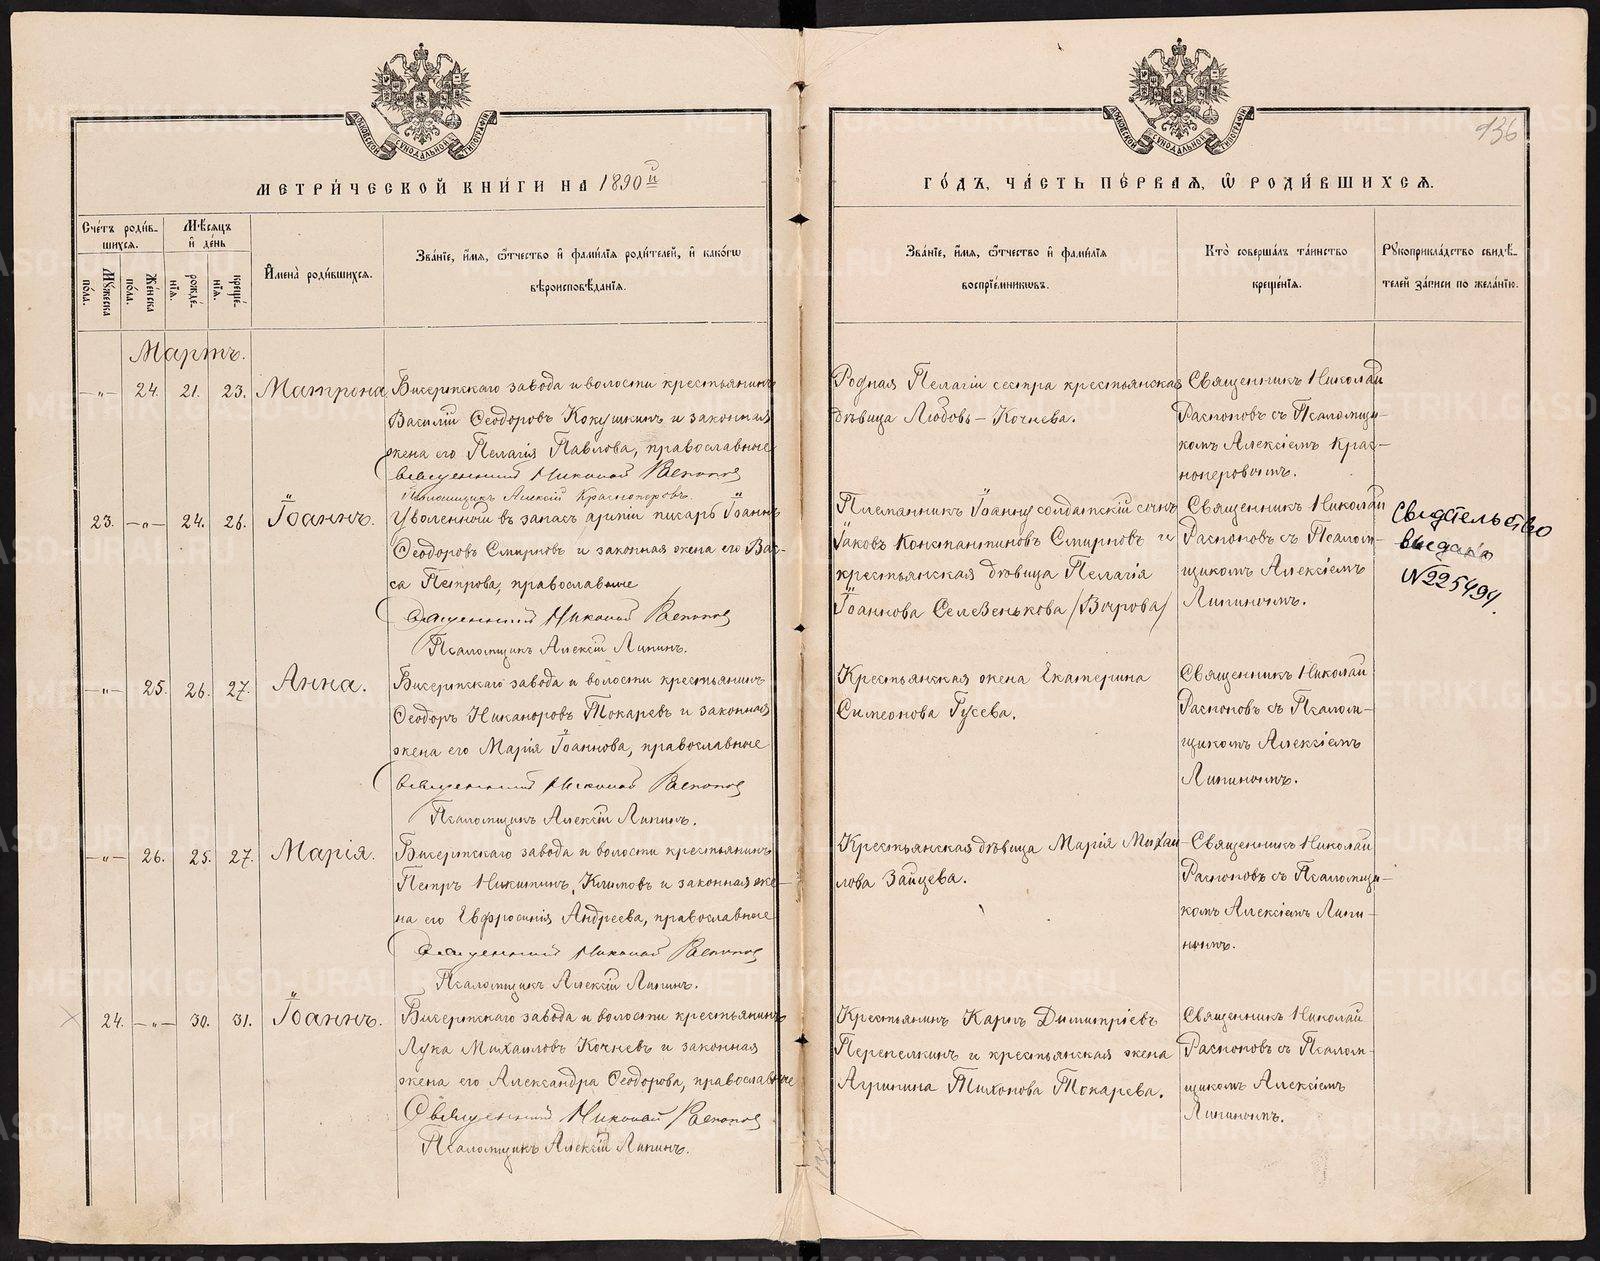 МОСКОВСКОЙ СУНОДАЛЬНОЙ ТИПОГРАФІИ
МЕТРИ́ЧЕСКОЙ КНИ́ГИ НА 1890й
Сче́тъ роди́в-
шихся.
Мѣ́сяцъ
и҆ де́нь
Мꙋ́жеска по́ла.
Же́нска по́ла.
рожде́-
нїѧ.
креще́-
нїѧ.
И҆мена̀ роди́вшихсѧ.
Зва́нїе, и҆́мѧ, ѻ҆́тчество и҆ фами́лїѧ роди́телей, и҆ како́гѡ
вѣроисповѣ́данїѧ.
Мартъ.
—„— 24. 21. 23. Матрона.
Бисертскаго завода и волости крестьянинъ
Василій Ѳеодоровъ Кокушкинъ и законная
жена его Пелагія Павлова, православные
Священникъ Николай Распоповъ
Псаломщикъ Алексій Красноперовъ.
23. —„— 24. 26. Іоаннъ.
Уволенный въ запасъ арміи писарь Іоаннъ
Ѳеодоровъ Смирновъ и законная жена его Вас-
са Петрова, православные
Священникъ Николай Распоповъ
Псаломщикъ Алексій Липинъ.
—„— 25. 26. 27. Анна.
Бисертскаго завода и волости крестьянинъ
Ѳеодоръ Никаноровъ Токаревъ и законная
жена его Марія Іоаннова, православные
Священникъ Николай Распоповъ
Псаломщикъ Алексій Липинъ.
—„— 26. 25. 27. Марія.
Бисертскаго завода и волости крестьянинъ
Петръ Никитинъ Климовъ и законная же-
на его Евфросинія Андреева, православные
Священникъ Николай Распоповъ
Псаломщикъ Алексій Липинъ.
24. —„— 30. 31. Іоаннъ.
Бисертскаго завода и волости крестьянинъ
Лука Михаиловъ Кочневъ и законная
жена его Александра Ѳеодорова, православные
Священникъ Николай Распоповъ
Псаломщикъ Алексій Липинъ.
МОСКОВСКОЙ СУНОДАЛЬНОЙ ТИПОГРАФІИ
136
ГО́ДЪ, ЧА́СТЬ ПЕ́РВАЯ, Ѡ҆ РОДИ́ВШИХСЯ.
Зва́нїе, и҆́мѧ, ѻ҆́тчество и҆ фами́лїѧ
воспрїе́мникѡвъ.
Кто̀ соверша́лъ та́инство
креще́нїѧ.
Рꙋкоприкла́дство свидѣ́-
телей за́писи по жела́нїю.
Родная Пелагіи сестра крестьянская
дѣвица Любовь – Кочнева.
Священникъ Николай
Распоповъ съ Псаломщи-
комъ Алексіемъ Крас-
ноперовымъ.
Племянникъ Іоанну солдатскій сынъ
Іаковъ Константиновъ Смирновъ и
крестьянская дѣвица Пелагія
Іоаннова Селезенькова
Священникъ Николай
Распоповъ съ Псалом-
щикомъ Алексіемъ
Липинымъ.
Свидетельство
выдано
№225494.
Крестьянская жена Екатерина
Симеонова Гусева.
Священникъ Николай
Распоповъ съ Псалом-
щикомъ Алексіемъ
Липинымъ.
Крестьянская дѣвица Марія Михаи-
лова Зайцева.
Священникъ Николай
Распоповъ съ Псаломщи-
комъ Алексіемъ Липи-
нымъ.
Крестьянинъ Карпъ Димитріевъ
Перепелкинъ и крестьянская жена
Агрипина Тихонова Токарева.
Священникъ Николай
Распоповъ съ Псалом-
щикомъ Алексіемъ
Липинымъ.
METRIKI.GASO-URAL.RU